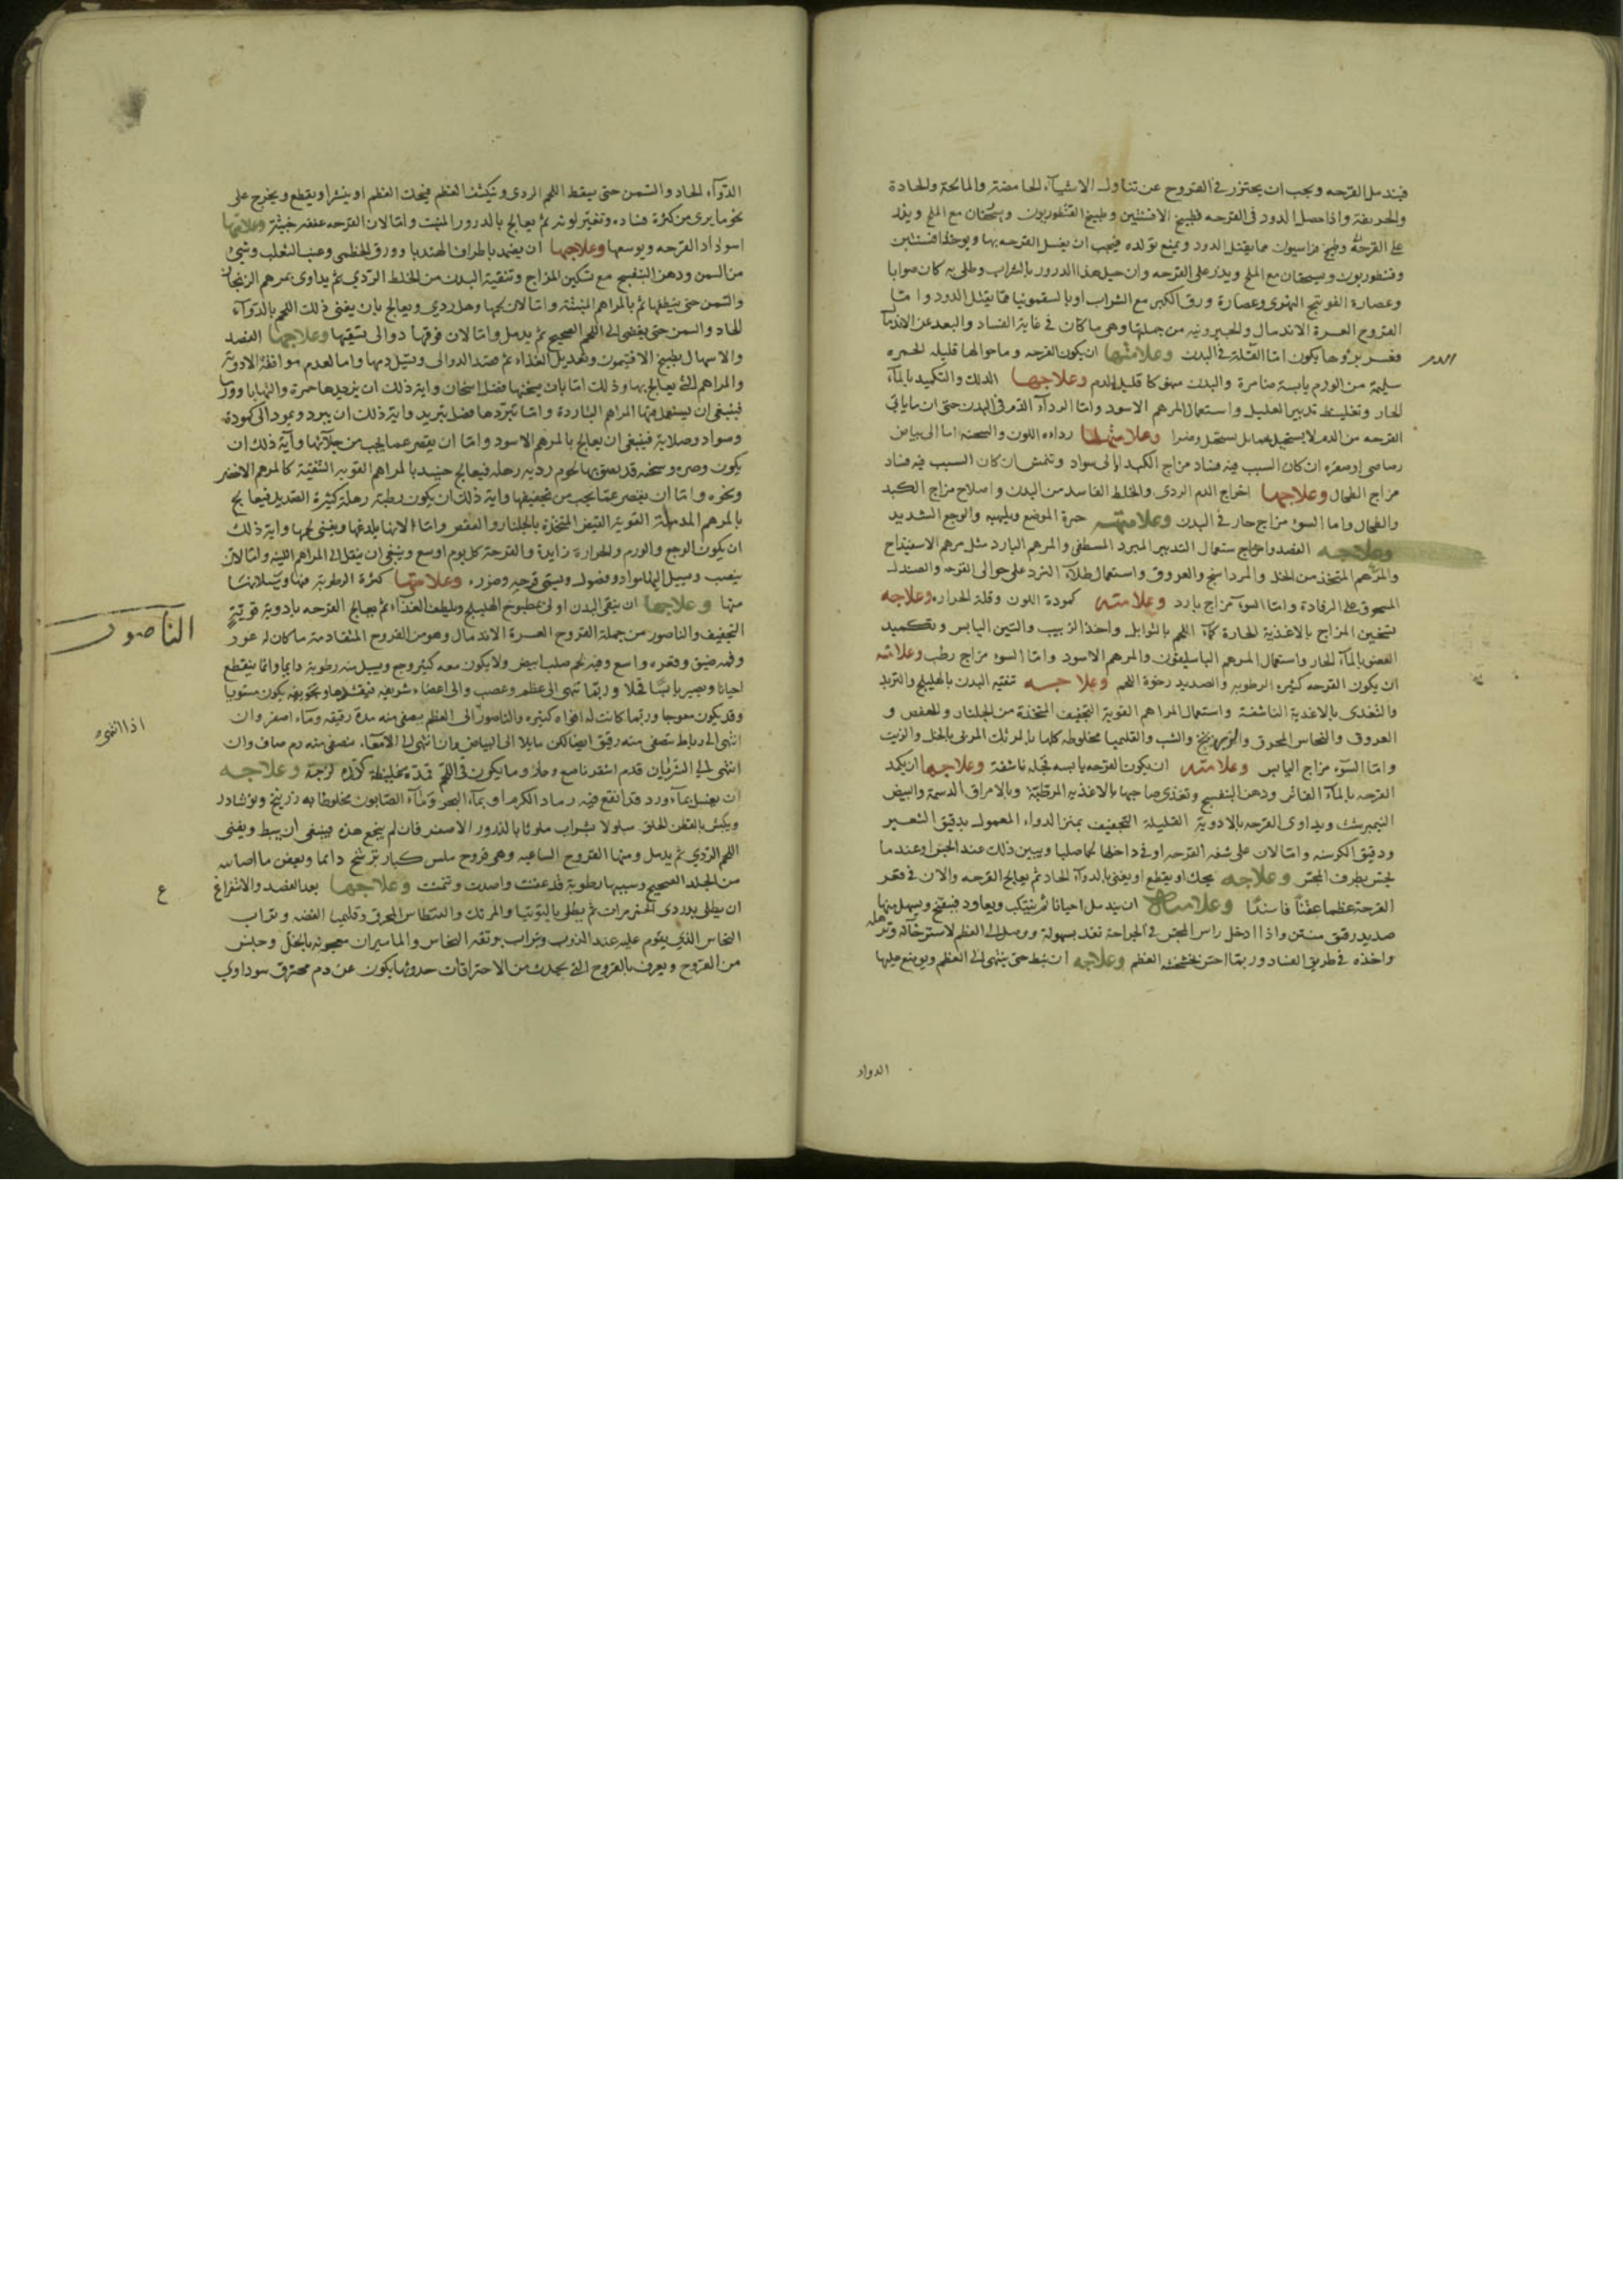 فيندمل القرحه ويجب ان يحترز في القروح عن تناول الاشياء الحامضة والمالحة والحادة
والحريفة واذا حصل الدود في القرحه فطبيخ الافسنتين وطبيخ القنطوريون ويسحقان مع الملح ويذر
على القرحة وطبيخ فراسيون مما يقتل الدود ويمنع تولده فيجب ان يغسل القرحه بها ويوخذ افسنتين
وقنطوريون ويسحقان مع الملح ويذر على القرحه وان حل هذا الدرور بالشراب وطلى به كان صوابا
وعصارة الفوتنج النهري وعصارة ورق الكبر مع الشراب او بالسقمونيا مما يقتل الدود واما
القروح العسرة الاندمال والخيرونيه من جملتها وهي ما كان في غاية الفساد والبعد عن الاندمال
فعسر برؤها يكون اما لقلة في البدن وعلامتها ان يكون القرحه وما حواليها قليله الحمره
الدم
سليمة من الورم يابسة ضامرة والبدن منهوكا قليل الدم وعلاجها الدلك والتكميد بالماء
الحار وتغليظ تدبير العليل واستعمال المرهم الاسود واما لرداءة الدم في البدن حتى ان ما ياتي
القرحه من الدم لا يستحيل وعلامتها رداءه اللون والسحنة اما الى بياض
رصاصي او صفره ان كان السبب فيه فساد مزاج الكبد او الى سواد وتنمش ان كان السبب فيه فساد
مزاج الطحال وعلاجها اخراج الدم الردى والخلط الفاسد من البدن واصلاح مزاج الكبد
والطحال واما لسوء مزاج حار في البدن وعلامته حمرة الموضع وتلهبه والوجع الشديد
وعلاجه الفصد واستعمال التدبير المبرد المطفى والمرهم البارد مثل مرهم الاسفيداج
والمرهم المتخذ من الخل والمرداسنج والعروق واستعمال طلاء المبرد على حوالى القرحه والصندل
المسحوق على الرفادة واما لسوء مزاج بارد وعلامته كمودة اللون وقلة الحرارة وعلاجه
تسخين المزاج بالاغذية الحارة كماء اللحم بالتوابل واخذ الزبيب والتين اليابس وتكميد
العضو بالماء الحار واستعمال المرهم الباسليقون والمرهم الاسود واما لسوء مزاج رطب وعلامته
ان يكون القرحه كثيره الرطوبه والصديد رخوة اللحم وعلاجه تنقيه البدن بالهليلج والتربد
والتغذى بالاغذية الناشفة واستعمال المراهم القوية التجفيف المتخذة من الجلنار والعفص و
العروق والنحاس المحرق والزرنيخ والشب والقليميا مخلوطه كلها بالمرتك المربى بالخل والزيت
واما لسوء مزاج اليابس وعلامته ان يكون القرحه يابسه قحله ناشفة وعلاجها ان يكمد
القرحه بالماء الفاتر ودهن البنفسج وتغذى صاحبها بالاغذيه المرطبة وبالامراق الدسمة والبيض
النيمبرشت ويداوى القرحه بالادوية القليلة التجفيف بمنزلة الدواء المعمول بدقيق الشعير
ودقيق الكرسنه واما لان على شفه القرحه او في داخلها لحما صلبا ويبين ذلك عند الجس او عندما
يجس بطرف المجس وعلاجه يحك او يقطع او يفنى بالدواء الحاد ثم يعالج القرحه والان في قعر
القرحة عظما عفنا فاسدا وعلامته ان يندمل احيانا ثم ينتكب ويعاود فينفتح ويسيل منها
صديد رقيق منتن واذا ادخل راس المجس في الجراحة نفذ بسهولة ووصل الى العظم لاسترخائه وترهله
واخذه في طريق الفساد وربما احس بخشخشة العظم وعلاجه ان يبط حتى ينتهي الى العظم ويوضع عليها
الدواء
الدواء الحاد والسمن حتى يسقط اللحم الردى وينكشف العظم فيحك العظم او ينشر او يقطع ويخرج على
نحو ما يرى من كثرة فساده وتغير لونه ثم يعالج بالدرور المنبت واما لان القرحه عفنه خبيثة وعلامتها
اسوداد القرحه وتوسعها وعلاجها ان يضمد باطراف الهندبا وورق الخطمى وعنب الثعلب وشئ
من السمن ودهن البنفسج مع تسكين المزاج وتنقية البدن من الخلط الردي ثم يداوى بمرهم الزنجار
والسمن حتى ينظفها ثم بالمراهم المنبتة واما لان لحمها رهل ردي ويعالج بان يفنى ذلك اللحم بالدواء
الحاد والسمن حتى يفضى الى اللحم الصحيح ثم يدمل واما لان فوقها دوالى تسقيها وعلاجها الفصد
والاسهال بطبيخ الافتيمون وتعديل الغذاء ثم فصد الدوالى وتسيل دمها واما لعدم موافقة الادوية
والمراهم التي يعالج بها وذلك اما بان يسخنها فضل اسخان واية ذلك ان يزيدها حمرة والتهابا وورما
فينبغي ان يستعمل فيها المراهم الباردة واما تبردها فضل تبريد واية ذلك ان يبرد ويعود الى كمودة
وسواد وصلابة فينبغي ان يعالج بالمرهم الاسود واما ان يقصر عما يجب من جلائها وآية ذلك ان
يكون وضره وسخه قد لصق بها لحوم رديه رهله فيعالج حينيذ بالمراهم القويه التنقية كالمرهم الاخضر
ونحوه واما ان يقصر عما يجب من تجفيفها واية ذلك ان يكون رطبة رهلة كثيرة الصديد فيعالج
بالمرهم المدملة القوية القبض المتخذة بالجلنار والعفص واما لانها يلدغها ويفنى لحمها واية ذلك
ان يكون الوجع والورم والحرارة زايدة والقرحة كل يوم اوسع وينبغي ان ينقل الى المراهم اللينه واما لان
ينصب ويسيل اليها مواد وفضول ويسقى قرحه وضرره وعلامتها كثرة الرطوبة فيها وسيلانها
منها وعلاجها ان ينقى البدن اولى بمطبوخ الهليلج ويلطف الغذاء ثم يعالج القرحه بادوية قوية
التجفيف والناصور من جملة القروح العسرة الاندمال وهو من القروح المتقادمة ما كان له غور
الناصور
وفمه ضيق وقعره واسع وفيه لحم صلب ابيض ولا يكون معه كثير وجع ويسيل منه رطوبة دايما وانما ينقطع
احيانا ويصير يابسا قحلا وربما تنتهى الى عظم وعصب والى اعضاء شريفه فيفسدها وتجويفه يكون مستويا
وقد يكون معوجا وربما كانت له افواه كثيره والناصور الى العظم يصفى منه مدة رقيقه وماء اصفر وان
انتهى الى رباط تصفى منه رقيق ابيضا لكن مايلا الى البياض وان انتهى الى الامعاء
انتهى الى الشريان قدم اشقر ناصع وحار وما يكون في اللحم فمدة غليظة كدرة لزجة وعلاجه
ان يغسل بماء ورد قد انقع فيه رماد الكرم او بماء البحر وماء الصابون مخلوطا به زرنيخ ونوشادر
ويكبس بالقطن الخلق مبلولا بشراب ملوثا بالذرور الاصفر فان لم ينجع هذه فينبغي ان يبط ويفنى
اللحم الردي ثم يدمل ومنها القروح الساعيه وهي قروح ملس كبار ترشح دايما وبعض ما اصابه
من الجلد الصحيح وسببها رطوبة قد عفنت واصدت ونتنت وعلاجها بعد الفصد والاستفراغ
ع
ان يطلى بدردى الخمر مرات ثم يطلى بالتوتيا والمرتك والقرطاس المحرق وقليميا الفضه وتراب
النحاس الذي يقوم عليه عند الذوب وتراب بوتقه النحاس والماميران معجونه بالخل وجنس
من القروح ويعرف بالقروح التي يحدث من الاحتراقات حدوثها يكون عن دم محترق سوداوي